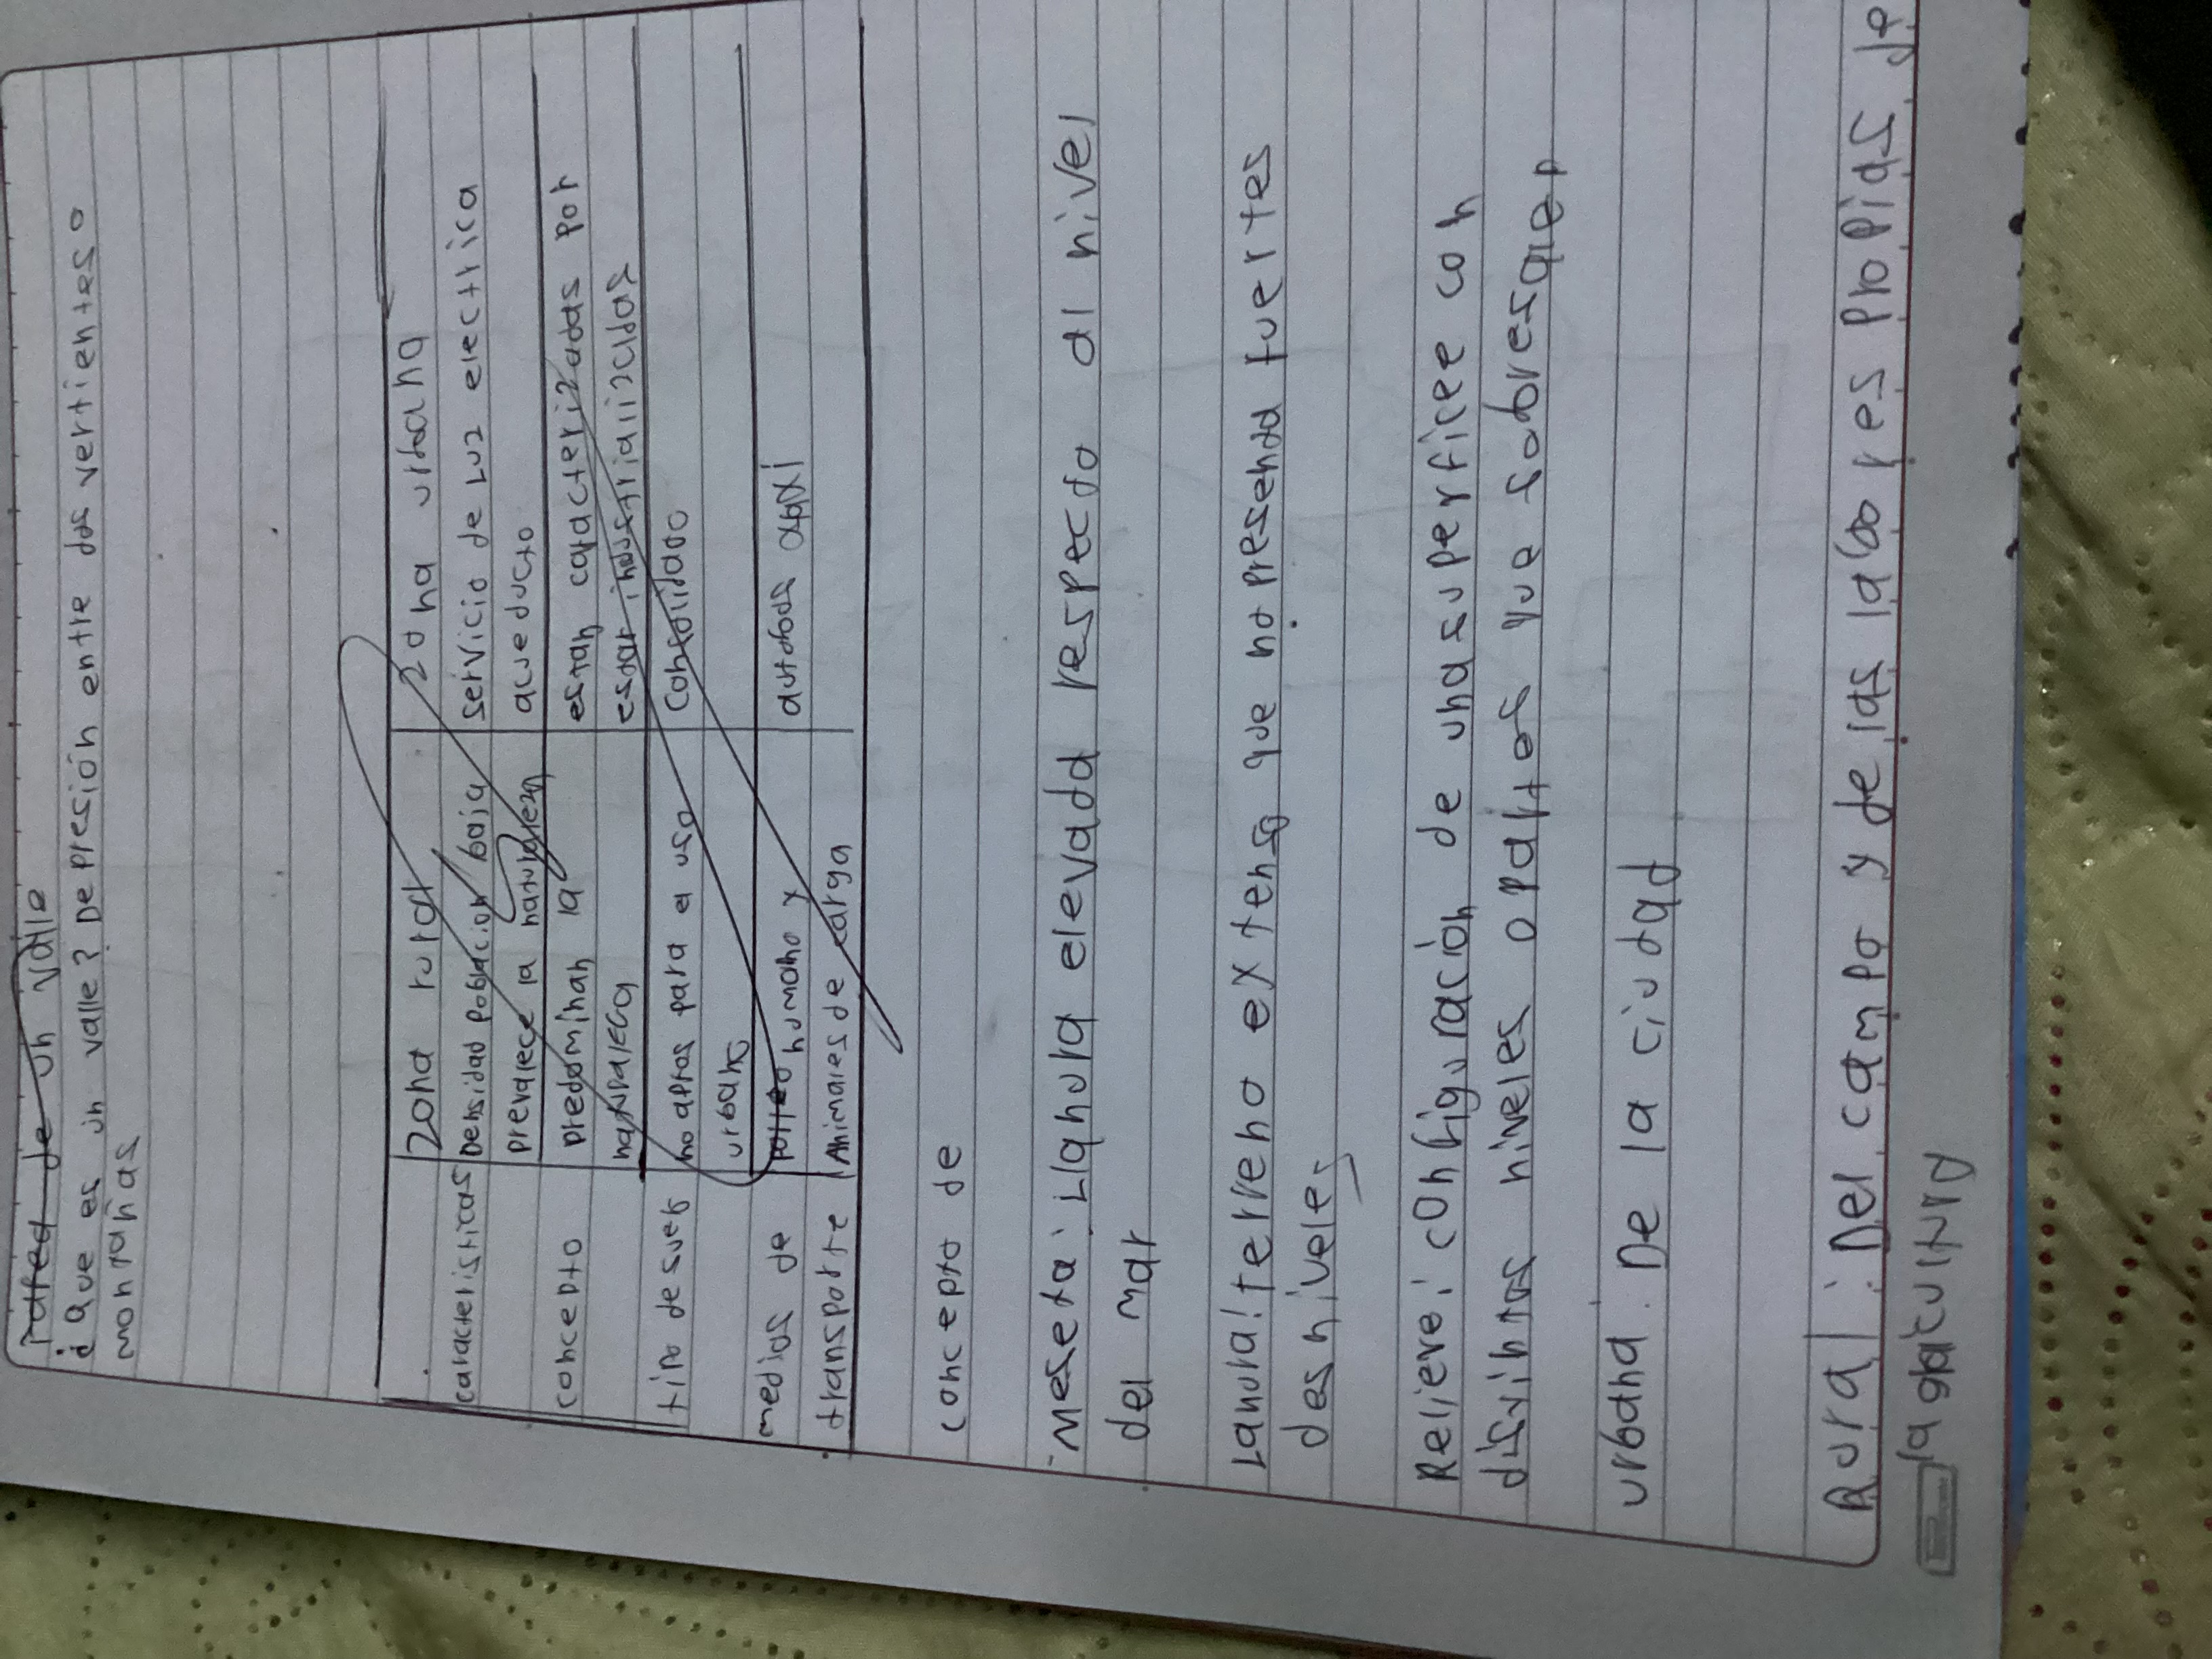 pared de un valle
¿Que es un valle? Depresión entre dos vertientes o
montañas
zona rural zona urbana
caracteristicas Densidad población baja servicio de luz electrica
prevalece la naturaleza acueducto
concepto predominan la estan caracterizadas por
estar industrializadas
tipo de suelo no aptos para el uso Consolidado
urbano
medios de humano y autobos
transporte Animales de carga
concepto de
Meseta: Llanura elevada respecto al nivel
del mar
Lanura: terreno extenso que no presenta fuertes
desniveles
Relieve: configuración de una superficee con
distintos niveles o partes que sobresaen
urbana: De la ciudad
Rural: Del campo y de las labores propias de
la gracultura